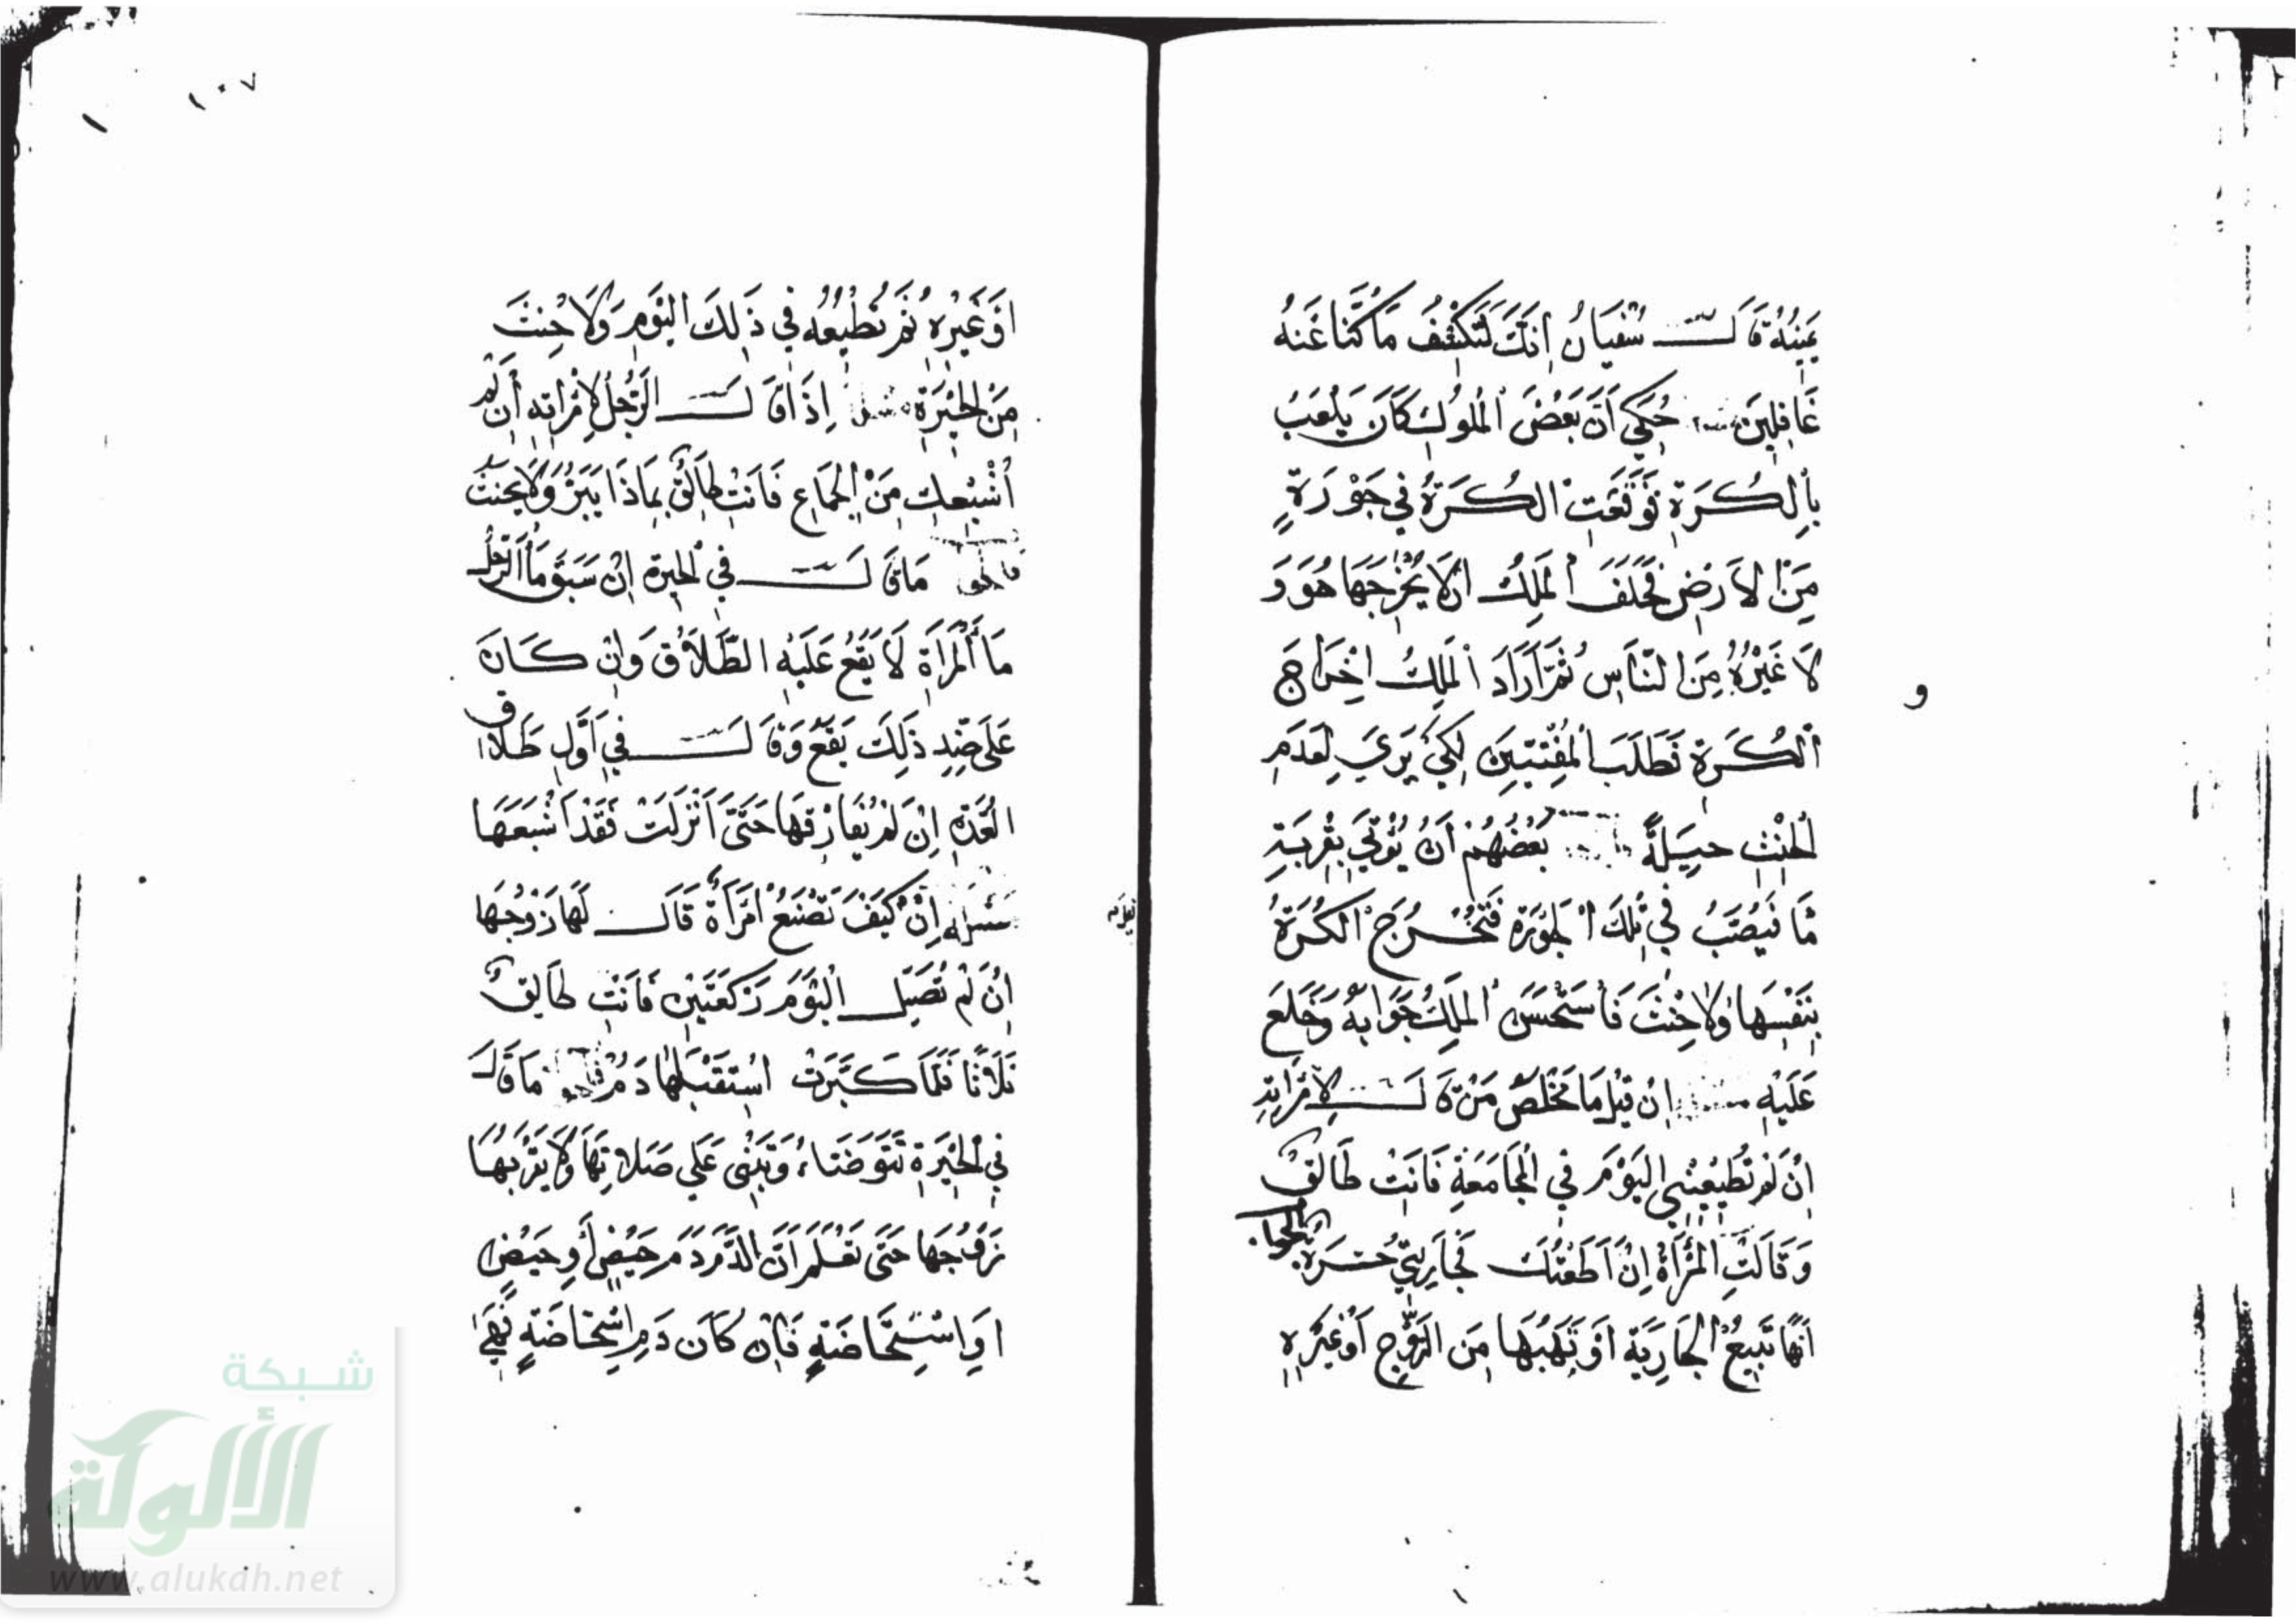 يَمِينُهُ قَالَ سُفْيَانُ إِنَّكَ لَتَكْشِفُ مَا كُنَّا عَنْهُ
غَافِلِينَ حُكِيَ أَنَّ بَعْضَ الْمُلُوكِ كَانَ يَلْعَبُ
بِالْكُرَةِ فَوَقَعَتِ الْكُرَةُ فِي جَوْرَةٍ
مِنَ الْأَرْضِ فَحَلَفَ الْمَلِكُ أَنْ لَا يُخْرِجَهَا هُوَ وَ
لَا غَيْرُهُ مِنَ النَّاسِ ثُمَّ أَرَادَ الْمَلِكُ إِخْرَاجَ
الْكُرَةِ فَطَلَبَ الْمُفْتِيِّينَ لِكَيْ يَرَى لِعَدَمِ
الْحِنْثِ حِيلَةً بَعْضُهُمْ أَنْ يُؤْتَى بِقِرْبَةِ
مَا فَيُصَبُّ فِي تِلْكَ الْجَوْرَةِ فَتَخْرُجَ الْكُرَةُ
بِنَفْسِهَا وَلَا حِنْثَ فَاسْتَحْسَنَ الْمَلِكُ جَوَابَهُ وَخَلَعَ
عَلَيْهِ إِنْ قِيلَ مَا مَخْلَصُ مَنْ قَالَ لِامْرَأَتِهِ
إِنْ لَمْ تُطِيعِينِي الْيَوْمَ فِي الْمُجَامَعَةِ فَأَنْتِ طَالِقٌ
وَقَالَتِ الْمَرْأَةُ إِنْ أَطَعْتُكَ فَجَارِيَتِي حُرَّةٌ الجواب
أَنَّهَا تَبِيعُ الْجَارِيَةَ أَوْ تَهَبُهَا مِنَ الزَّوْجِ أَوْ غَيْرِهِ
و
أَوْ غَيْرِهِ ثُمَّ تُطِيعُهُ فِي ذَلِكَ الْيَوْمِ وَلَا حِنْثَ
مِنَ الْحَيْرَةِ إِذَا قَالَ الرَّجُلُ لِامْرَأَتِهِ إِنْ لَمْ
أُشْبِعْكِ مِنَ الْجِمَاعِ فَأَنْتِ طَالِقٌ بِمَاذَا يَبَرُّ وَلَا يَحْنَثُ
فالجو مَا قَالَ فِي الْحَيْرَةِ إِنْ سَبَقَ مَاءُ الرَّجُلِ
مَاءَ الْمَرْأَةِ لَا يَقَعُ عَلَيْهِ الطَّلَاقُ وَإِنْ كَانَ
عَلَى ضِدِّ ذَلِكَ يَقَعُ وَقَالَ فِي أَوَّلِ طَلَاق
الْعُدَّةِ إِنْ لَمْ يُفَارِقْهَا حَتَّى أَنْزَلَتْ فَقَدْ أَشْبَعَهَا
إِنْ كَيْفَ تَصْنَعُ امْرَأَةٌ قَالَ لَهَا زَوْجُهَا
إِنْ لَمْ تُصَلِّ الْيَوْمَ رَكْعَتَيْنِ فَأَنْتِ طَالِقٌ
ثَلَاثًا فَلَمَّا كَبَّرَتْ اسْتَقْبَلَهَا دَمٌ فالجو مَا قَالَ
فِي الْحَيْرَةِ تَتَوَضَّاءُ وَتَبْنِي عَلَى صَلَاتِهَا وَلَا يَقْرَبُهَا
زَوْجُهَا حَتَّى تَعْلَمَ أَنَّ الدَّمَ دَمُ حَيْضٍ أَوِ حَيْضٍ
أَوِ اسْتِحَاضَةٍ فَإِنْ كَانَ دَمِ اسْتِحَاضَةٍ فَهِيَ
١٠٧
شبكة
الألوكة
www.alukah.net